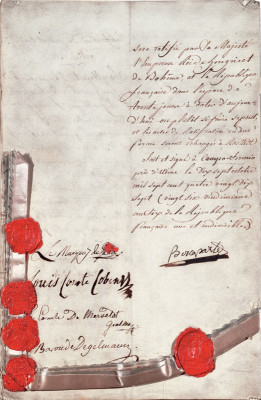 sera ratifié par Sa Majesté
l'Empereur Roi de hongrie et
de Bohême et la République
française dans l'espace de
trente jours à dater d'aujour-
d'hui ou plutôt si faire se peut,
et les actes de Ratification en due
forme seront échangés à Rastadt
fait et signé à Campo-formio
près d'Udine le Dix sept octobre
mil sept cent quatre vingt dix
sept (vingt six vendémiaire
an six de la République
française une et indivisible)
Bonaparte
Le Marquis de
Louis Comte Cobenzl
Comte De Merveldt
Baron de Degelmann